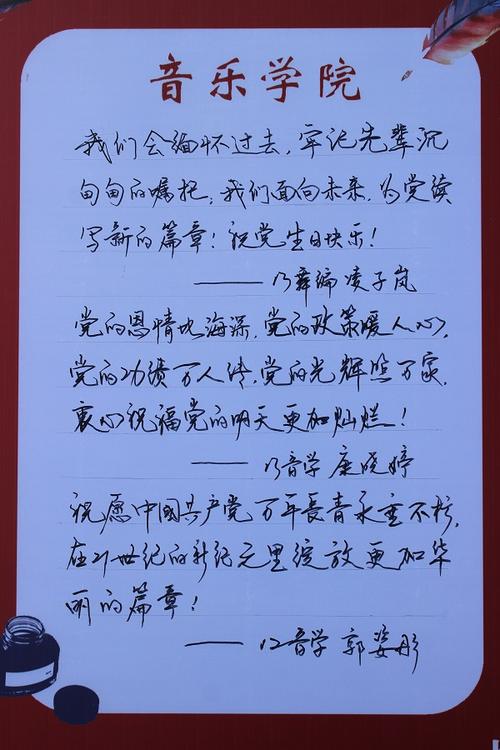 音乐学院
我们会缅怀过去,牢记先辈沉
甸甸的嘱托,我们面向未来,为党续
写新的篇章!祝党生日快乐!
——09舞编 凌子岚
党的恩情比海深,党的政策暖人心,
党的功绩万人传,党的光辉照万家,
衷心祝福党的明天更加灿烂!
——09音学 康晓婷
祝愿中國共产党万年長青永垂不朽,
在21世纪的新纪元里绽放更加华
丽的篇章!
——12音学 郭姿彤